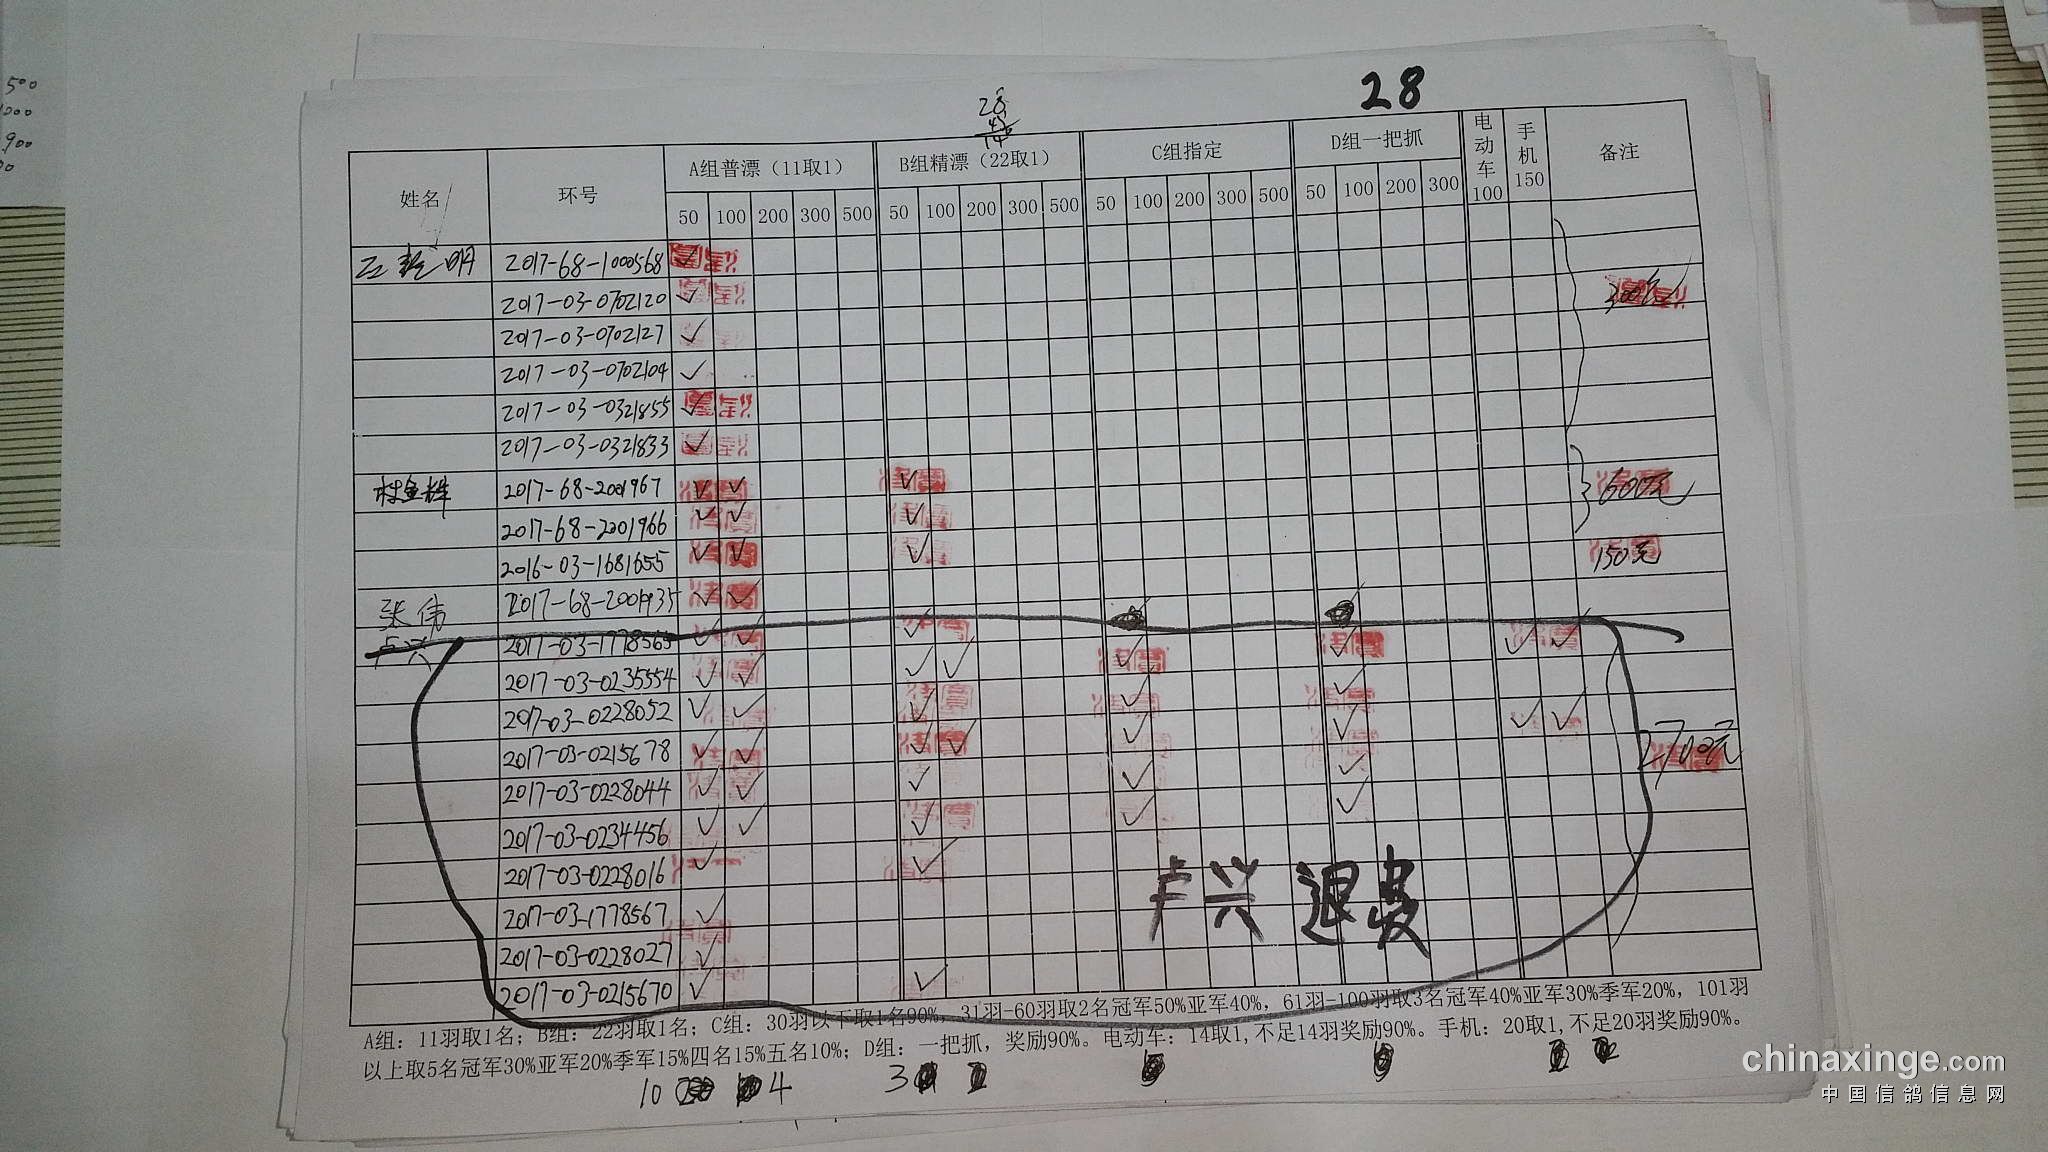 500
900
28
28
姓名 环号 A组普漂（11取1） B组精漂（22取1） C组指定 D组一把抓 电动车100 手机150 备注
50 100 200 300 500 50 100 200 300 500 50 100 200 300 500 50 100 200 300
2017-68-1000568 ✓
2017-03-0702120 ✓ 300元
2017-03-0702127 ✓
2017-03-0702104 ✓
2017-03-0321855 ✓
2017-03-0321833 ✓
2017-68-2001967 ✓ ✓ ✓ 600元
2017-68-2001966 ✓ ✓ ✓
2016-03-1681655 ✓ ✓ ✓ 150元
张伟 2017-68-2001935 ✓ ✓
卢兴 2017-03-1778565 ✓ ✓ ✓ ✓ ✓ ✓
2017-03-0235554 ✓ ✓ ✓ ✓ ✓ ✓
2017-03-0228052 ✓ ✓ ✓ ✓ ✓ ✓ ✓
2017-03-0215678 ✓ ✓ ✓ ✓ ✓ ✓ 2700元
2017-03-0228044 ✓ ✓ ✓ ✓ ✓
2017-03-0234456 ✓ ✓ ✓ ✓ ✓
2017-03-0228016 ✓ ✓
2017-03-1778567 ✓ 卢兴 退费
2017-03-0228027 ✓
2017-03-0215670 ✓ ✓
A组：11羽取1名；B组：22羽取1名；C组：30羽以下取1名90%，31羽-60羽取2名冠军50%亚军40%，61羽-100羽取3名冠军40%亚军30%季军20%，101羽
以上取5名冠军30%亚军20%季军15%四名15%五名10%；D组：一把抓，奖励90%。电动车：14取1,不足14羽奖励90%。手机：20取1,不足20羽奖励90%。
10 4 3
chinaxinge.com
中国信鸽信息网